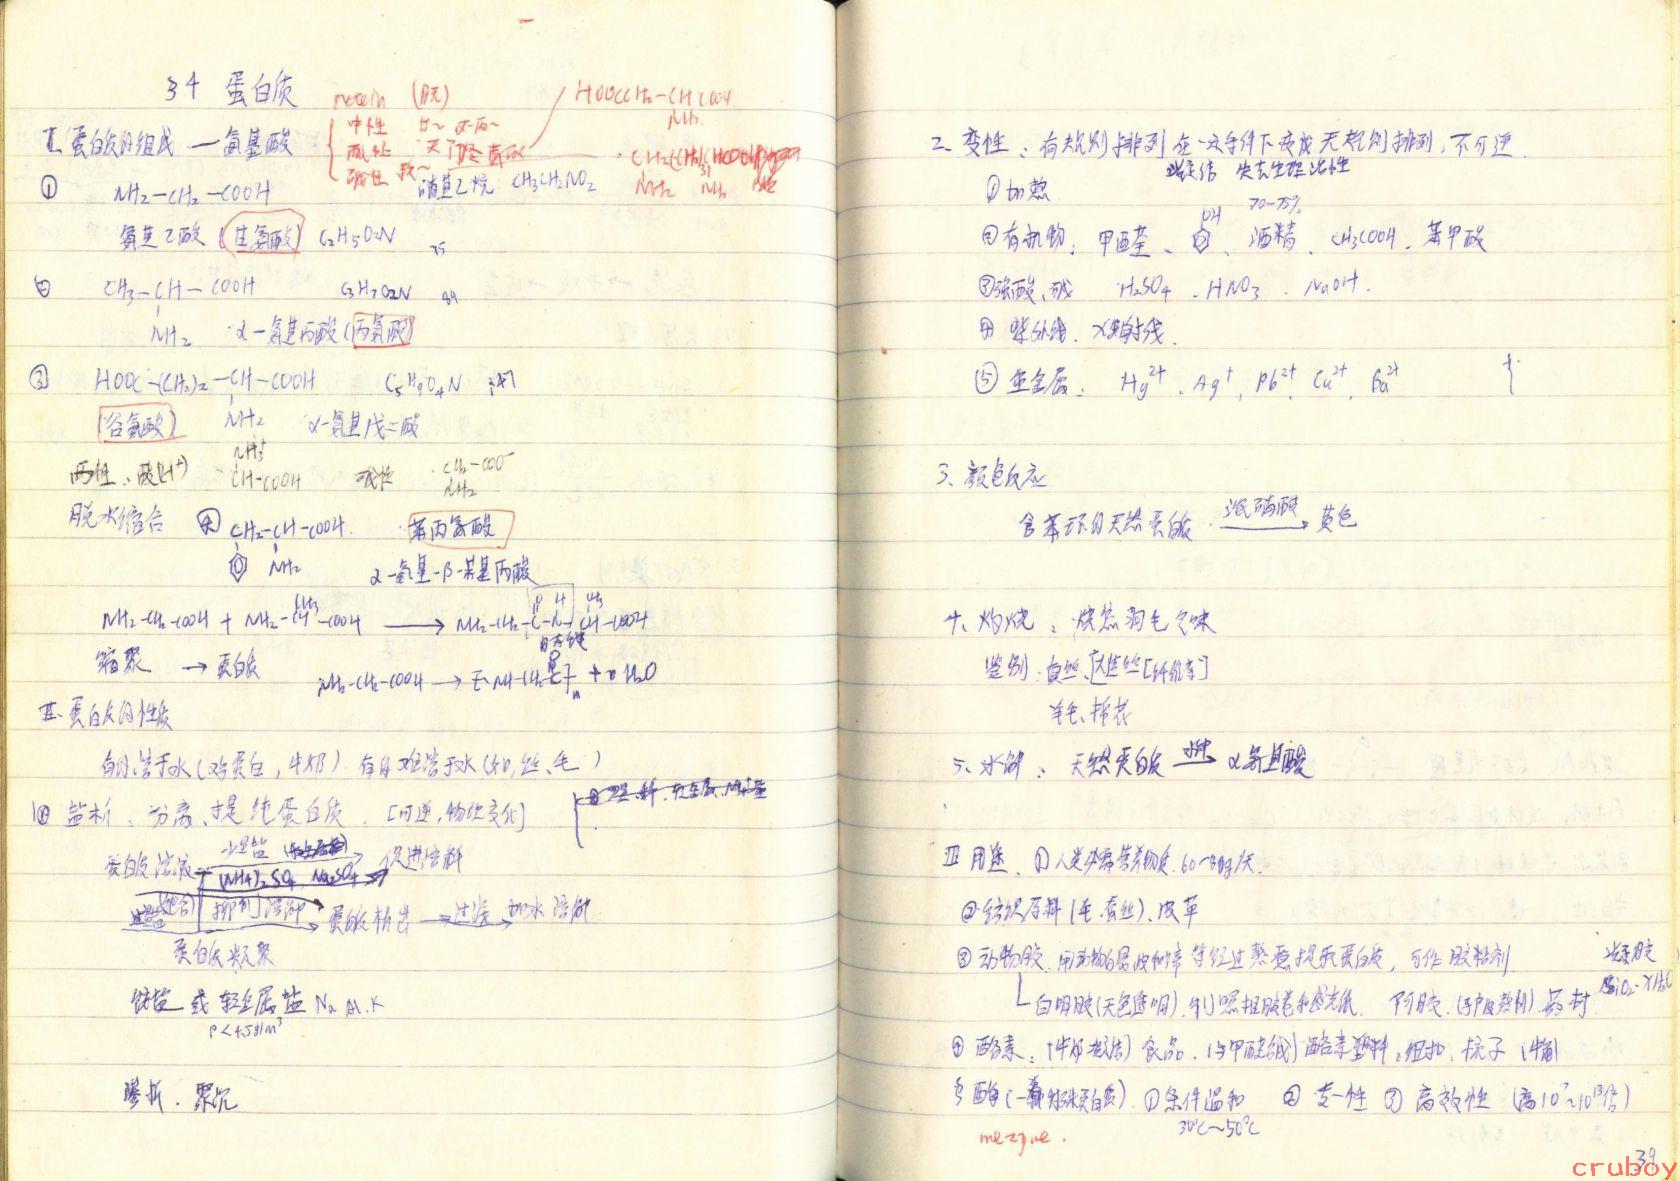 §4 蛋白质
protein (朊)
中性
酸性
碱性
HOOCCH2-CHCOOH
NH2
硝基乙烷 CH3CH2NO2
I. 蛋白质的组成 — 氨基酸
① NH2-CH2-COOH
氨基乙酸 (甘氨酸) C2H5O2N 75
② CH3-CH-COOH C3H7O2N 89
NH2 α-氨基丙酸 (丙氨酸)
③ HOOC-(CH2)2-CH-COOH C5H9O4N 147
(谷氨酸) NH2 α-氨基戊二酸
NH3+
两性、酸(H+) CH-COOH 碱性 CH2-COO-
NH2
脱水缩合 ④ CH2-CH-COOH 苯丙氨酸
NH2 α-氨基-β-苯基丙酸
NH2-CH2-COOH + NH2-CH-COOH → NH2-CH2-C-N-CH-COOH
CH3 O H CH3
缩聚 → 蛋白质 NH2-CH2-COOH → [NH-CH2-C]n + nH2O
II. 蛋白质的性质
有的溶于水 (鸡蛋白, 牛奶) 有的难溶于水 (如, 丝、毛)
1. 盐析、分离、提纯蛋白质. [可逆, 物理变化]
蛋白质溶液 少量盐 促进溶解
(NH4)2SO4 Na2SO4
蛋白质析出 → 过滤 加水溶解
蛋白质凝聚
铵盐 或 轻金属盐 Na Al. K
ρ<4.5g/cm³
渗析. 聚沉
2. 变性: 有规则排列 在一定条件下变成 无规则排列, 不可逆.
凝结 失去生理活性
① 加热
② 有机物: 甲醛、 OH 、酒精、CH3COOH、苯甲酸
70~75%
③ 强酸、碱 H2SO4、HNO3、NaOH.
④ 紫外线、X射线.
⑤ 重金属: Hg2+、Ag+, Pb2+ Cu2+、Ba2+
3、颜色反应
含苯环的天然蛋白质 浓硝酸→ 黄色
4、灼烧: 烧焦羽毛气味
鉴别: 真丝、人造丝 [纤维素]
羊毛、棉花
5、水解: 天然蛋白质 → α氨基酸
III 用途、① 人类必需营养物质. 60~80g/天.
② 纺织原料 (毛.蚕丝)、皮革
③ 动物胶、用动物的骨皮和蹄等经过熬煮提取蛋白质, 可作胶粘剂
白明胶 (无色透明)、制照相胶卷和感光纸. 阿胶. (驴皮熬制) 药材
硅胶
SiO2·XH2O
④ 酪素: (牛奶凝结) 食品. (与甲醛合成) 酪素塑料: 纽扣、梳子
5 酶 (一种特殊蛋白质). ① 条件温和 ② 专一性 ③ 高效性 (高10⁷~10¹³倍)
30℃~50℃
mezyne.
39
cruboy